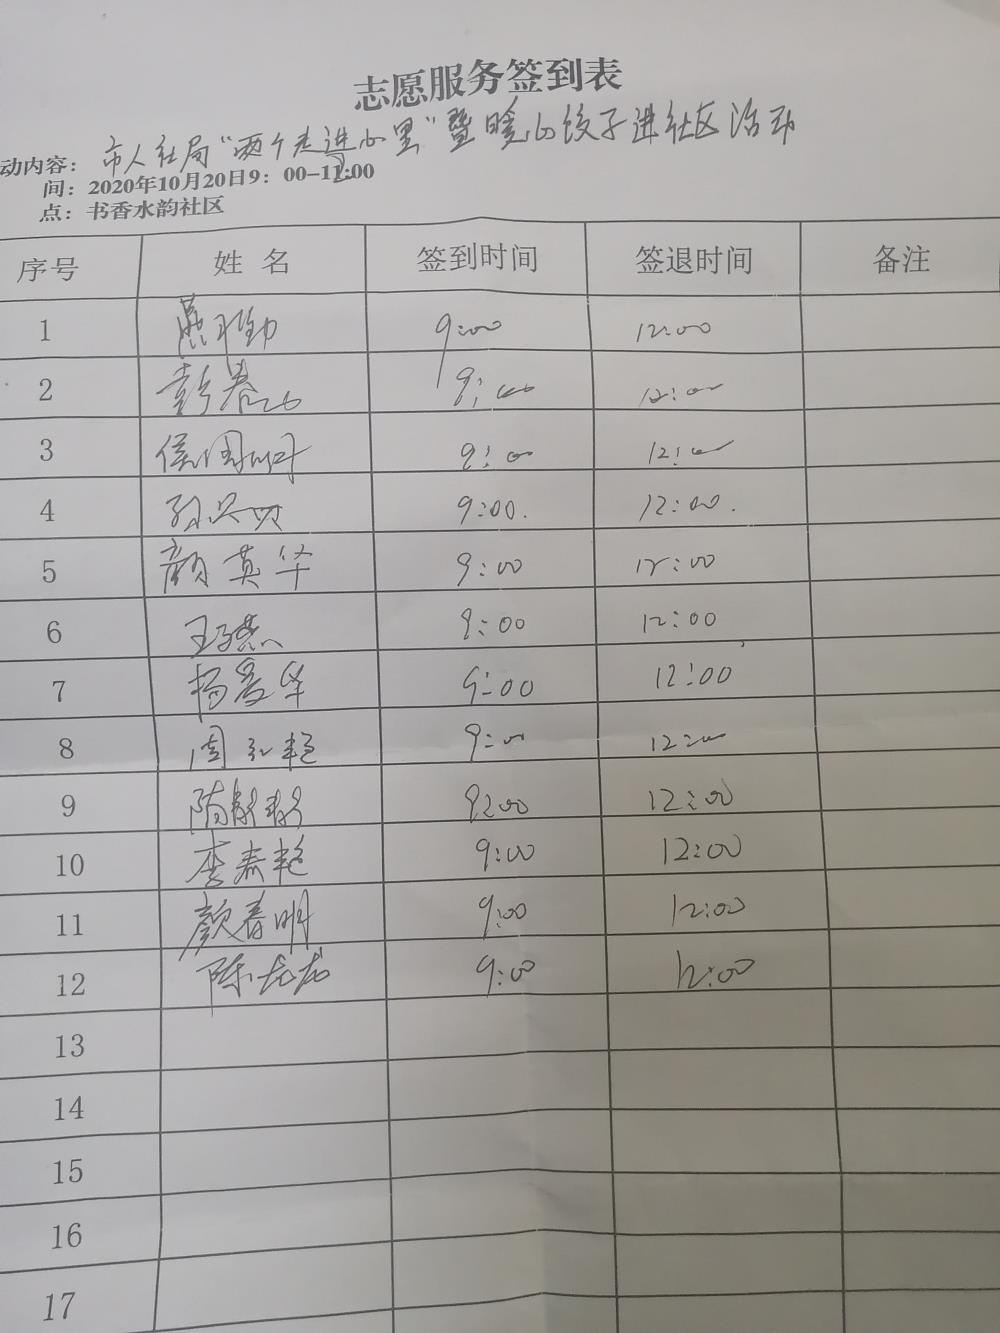 志愿服务签到表
动内容：市人社局“两个走进心里”暨暖心饺子进社区活动
间：2020年10月20日9：00-12:00
点：书香水韵社区
序号 姓名 签到时间 签退时间 备注
1 9:00 12:00
2 彭春 9:00 12:00
3 侯国 9:00 12:00
4 9:00. 12:00.
5 颜英华 9:00 12:00
6 王 9:00 12:00
7 杨爱华 9:00 12:00
8 周红艳 9:00 12:00
9 隋 9:00 12:00
10 李春艳 9:00 12:00
11 颜春明 9:00 12:00
12 陈龙龙 9:00 12:00
13
14
15
16
17